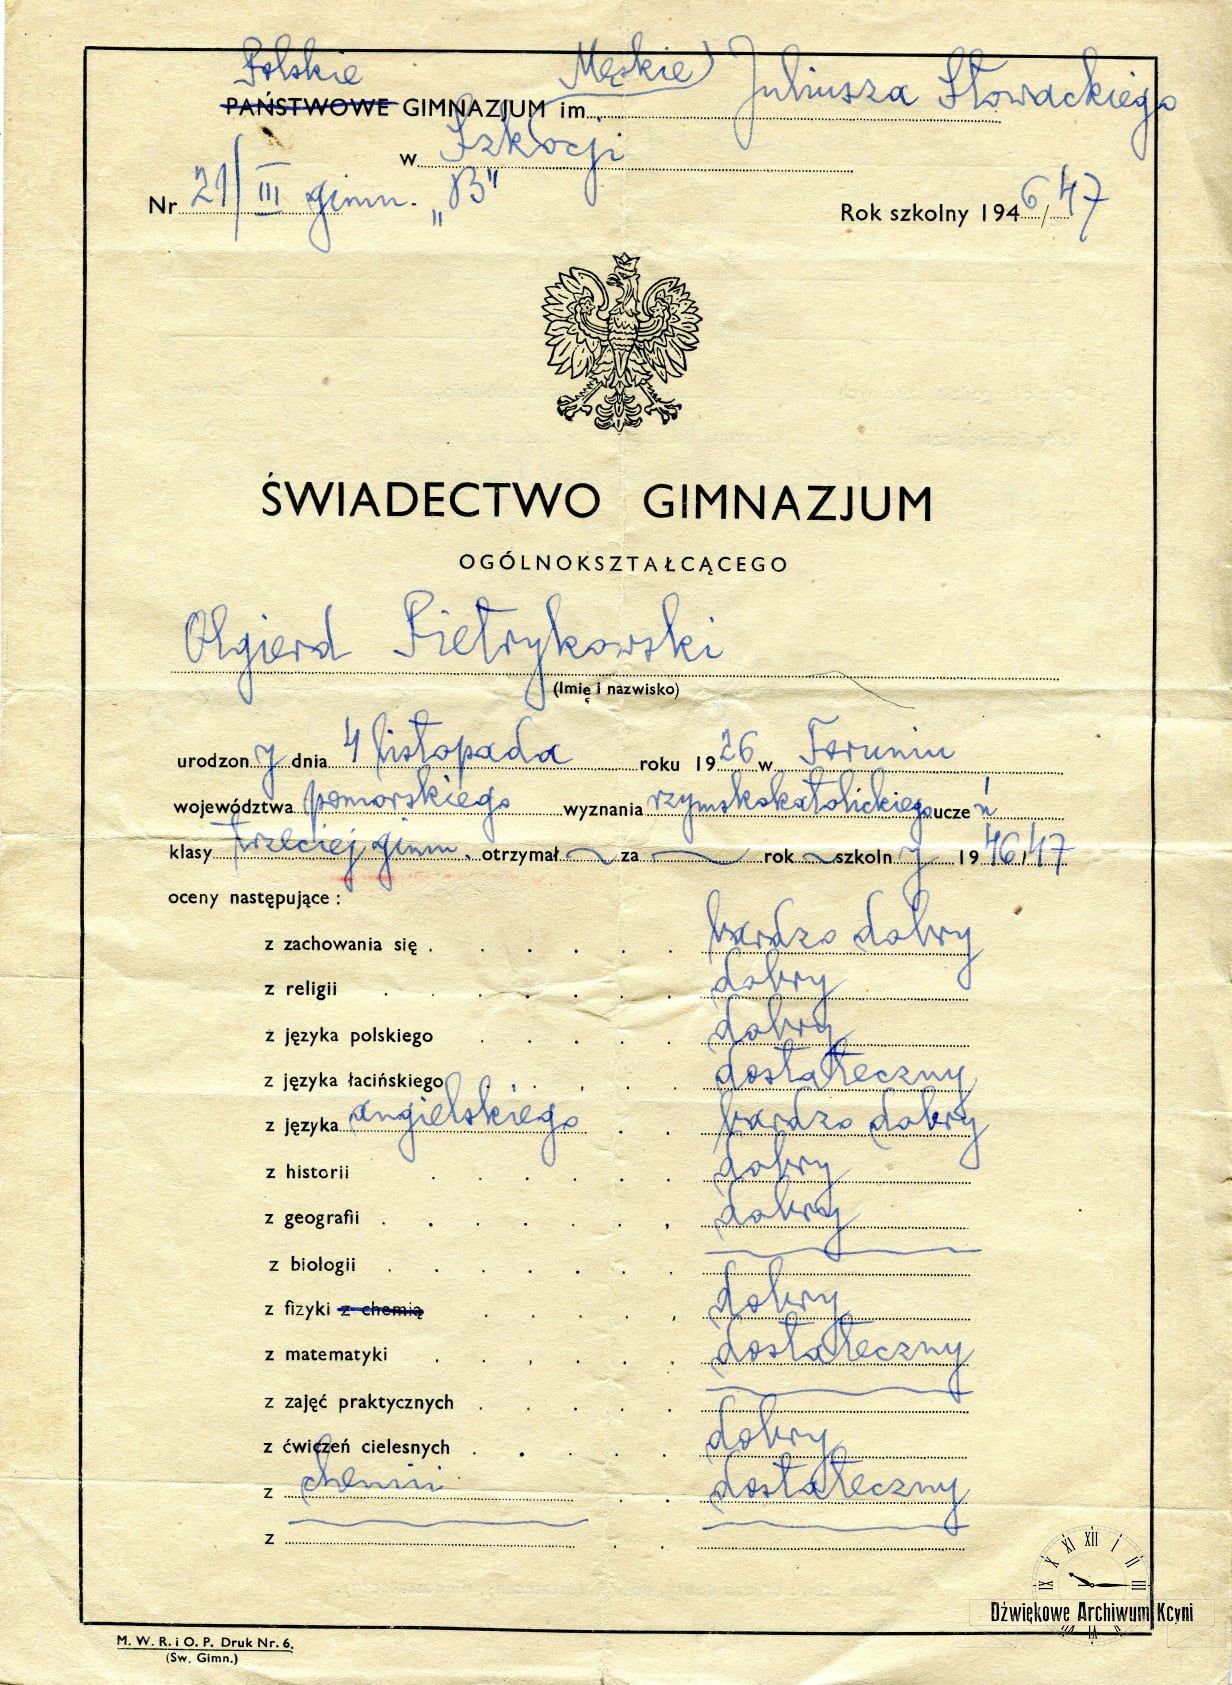 Polskie Męskie Juliusza Słowackiego
PAŃSTWOWE GIMNAZJUM im.
w Szkocji
Nr 21/III gimn. „B"
Rok szkolny 1946/47
ŚWIADECTWO GIMNAZJUM
OGÓLNOKSZTAŁCĄCEGO
Olgierd Pietrykowski
(Imię i nazwisko)
urodzony dnia 4 listopada roku 1926 w Toruniu
województwa pomorskiego wyznania rzymskokatolickiego uczeń
klasy trzeciej gimn. otrzymał za rok szkolny 1946/47
oceny następujące:
z zachowania się bardzo dobry
z religii dobry
z języka polskiego dobry
z języka łacińskiego dostateczny
z języka angielskiego bardzo dobry
z historii dobry
z geografii dobry
z biologii
z fizyki z chemią dobry
z matematyki dostateczny
z zajęć praktycznych
z ćwiczeń cielesnych dobry
z chemii dostateczny
z
M. W. R. i O. P. Druk Nr. 6.
(Sw. Gimn.)
Dźwiękowe Archiwum Kcyni